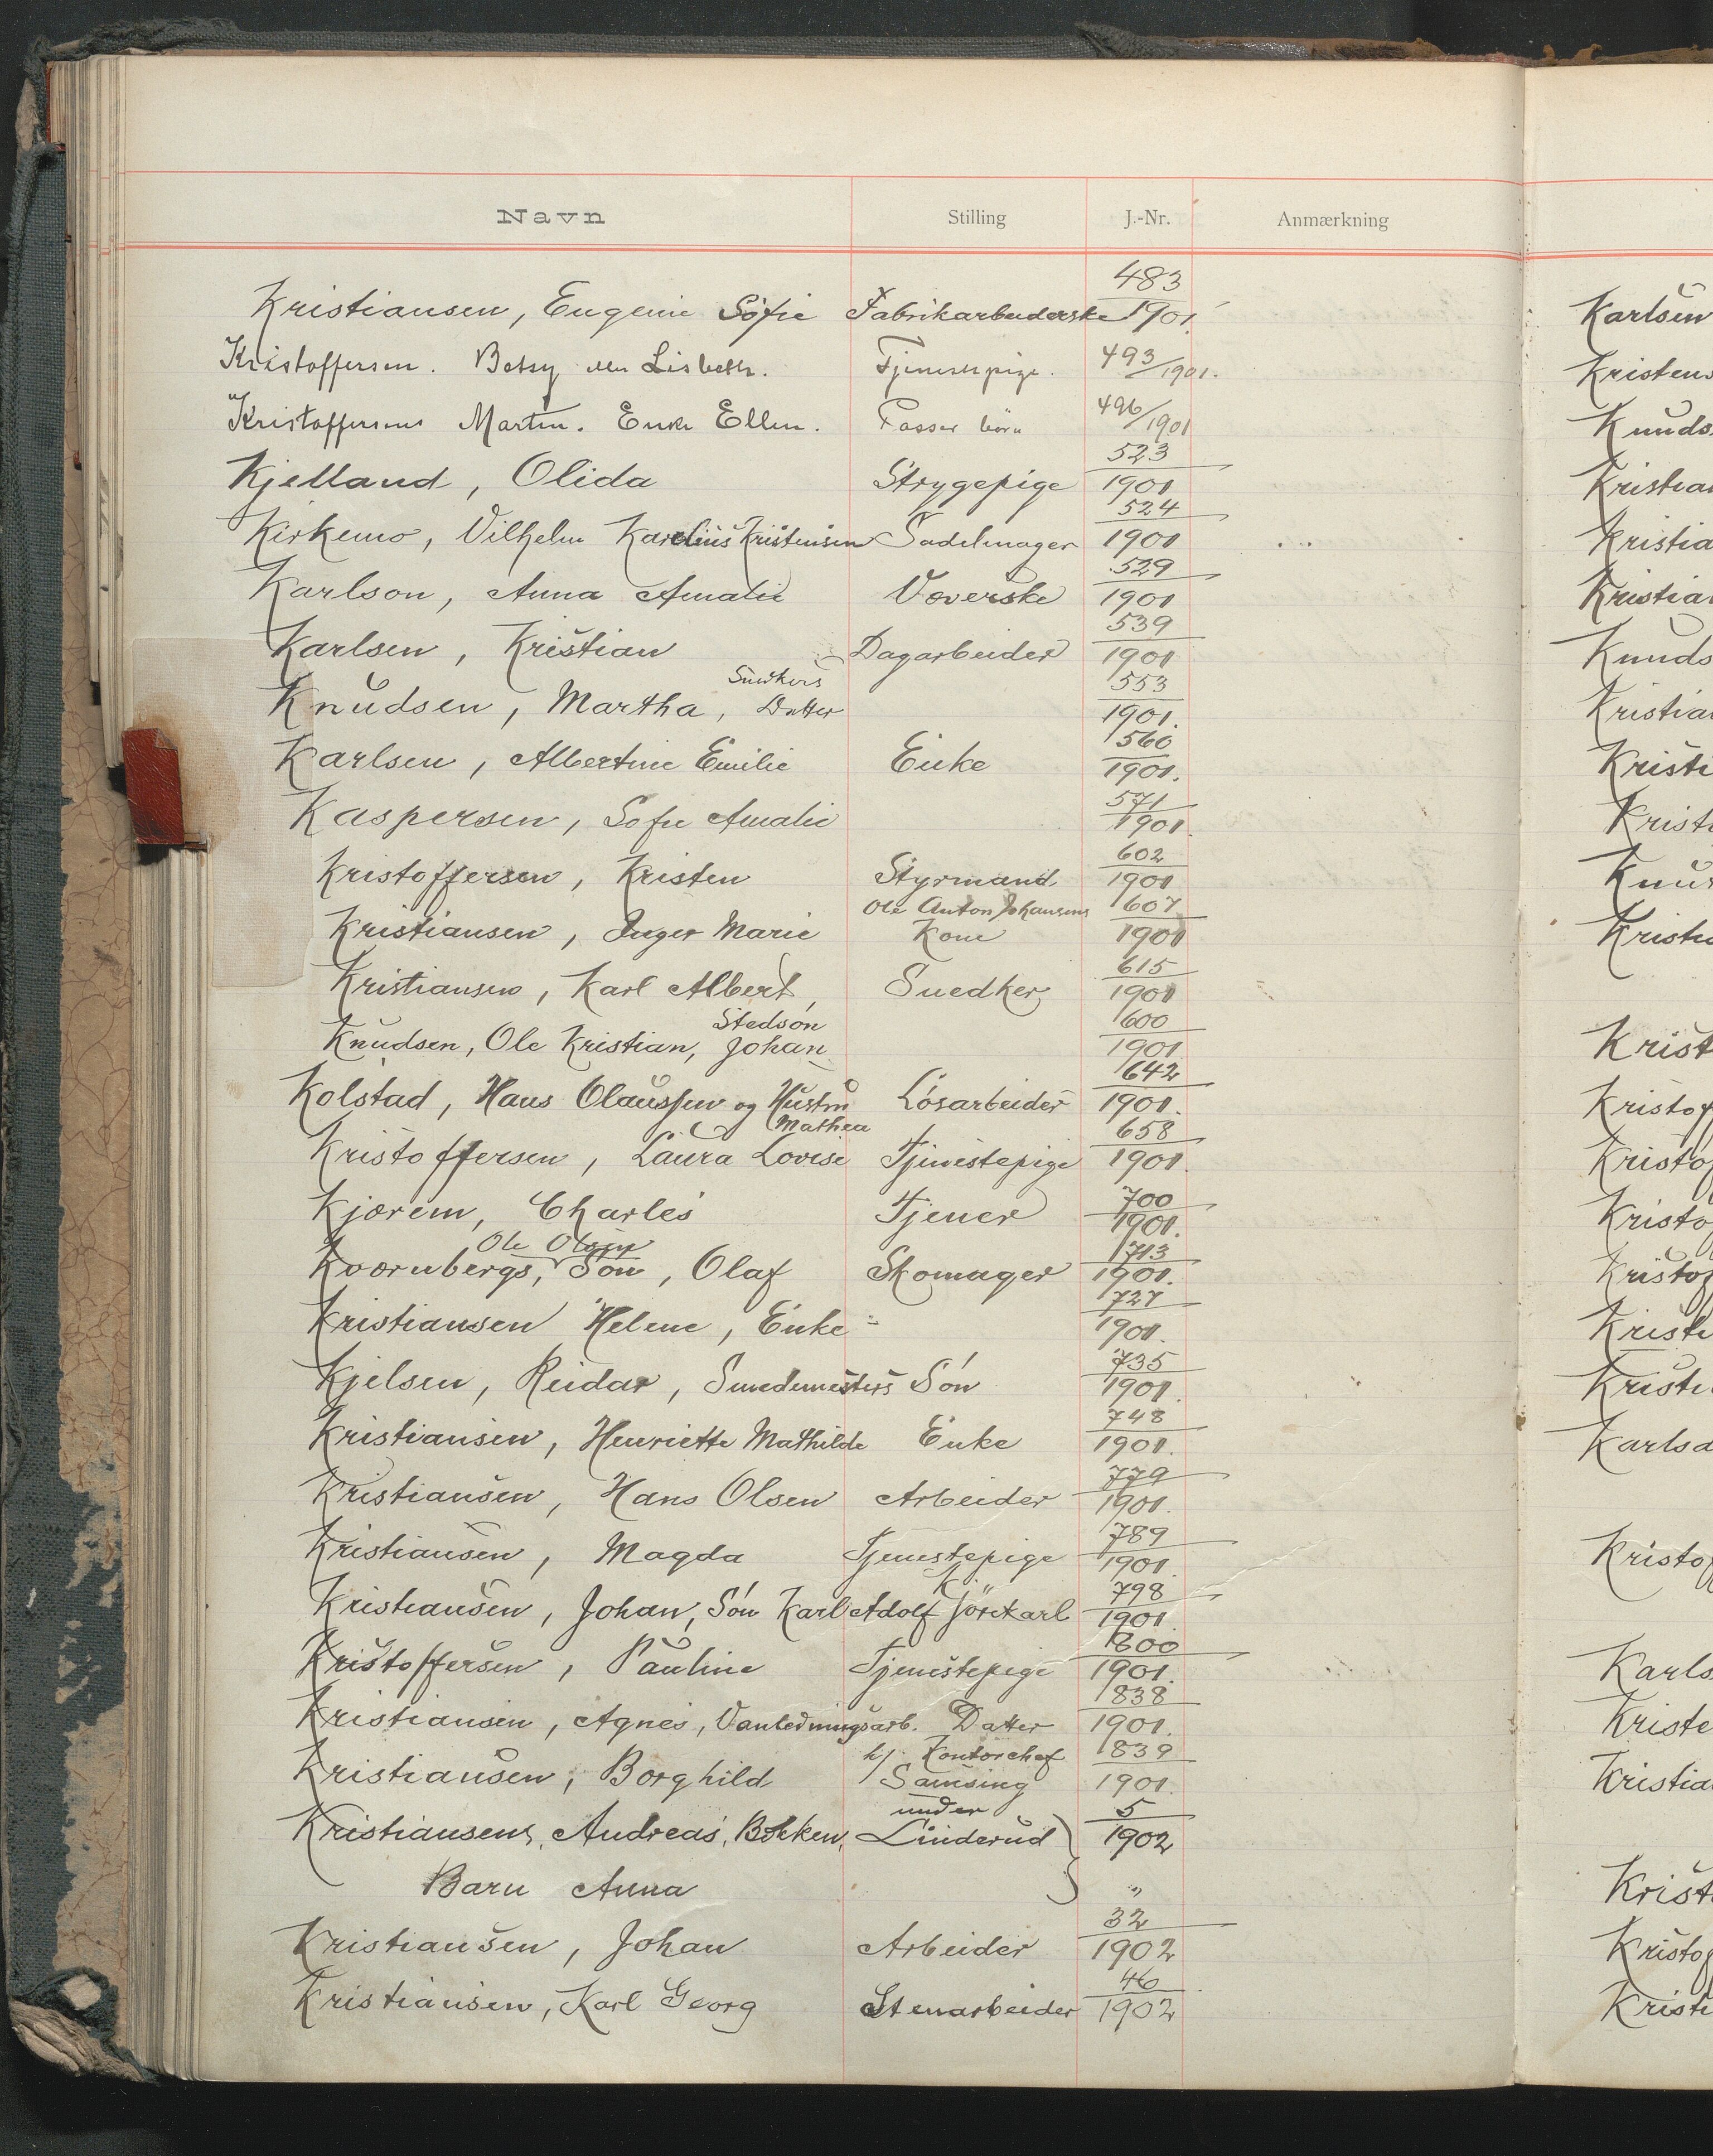 Navn Stilling J.-Nr. Anmærkning
Kristiansen, Eugenie Sofie Fabrikarbeiderske 483/1901.
Kristoffersen. Betsy Lisbeth. Tjenestepige. 493/1901.
Kristoffersens Martin. Enke Ellen. Passer börn 496/1901
Kjelland, Olida Strygepige 523/1901
Kirkemo, Vilhelm Karelius Kristensen Sadelmager 524/1901
Karlson, Anna Amalie Væverske 529/1901
Karlsen, Kristian Dagarbeider 539/1901
Knudsen, Martha, Snedkers Datter 553/1901.
Karlsen, Albertine Emilie Enke 560/1901.
Kaspersen, Sofie Amalie 571/1901.
Kristoffersen, Kristen Styrmand 602/1901
Kristiansen, Inger Marie Ole Anton Johansens Kone 607/1901
Kristiansen, Karl Albert, Snedker 615/1901
Knudsen, Ole Kristian, Stedsøn Johan 600/1901
Kolstad, Hans Olaussen og Hustru Mathea Løsarbeider 642/1901.
Kristoffersen, Laura Lovise Tjenestepige 658/1901.
Kjærem, Charles Tjener 700/1901.
Kværnbergs, Ole Olsen Søn, Olaf Skomager 713/1901.
Kristiansen Helene, Enke 727/1901.
Kjelsen, Reidar, Smedemesters Søn 735/1901.
Kristiansen, Henriette Mathilde Enke 748/1901.
Kristiansen, Hans Olsen Arbeider 779/1901.
Kristiansen, Magda Tjenestepige 789/1901.
Kristiansen, Johan, Søn Karl Adolf Kjörekarl 798/1901.
Kristoffersen, Pauline Tjenestepige 800/1901.
Kristiansen, Agnes, Vandledningsarb. Datter 838/1901.
Kristiansen, Borghild hj. Kontorchef Samsing 839/1901.
Kristiansens, Andreas, Bakken, under Linderud 5/1902
Barn Anna "
Kristiansen, Johan Arbeider 32/1902
Kristiansen, Karl Georg Stenarbeider 46/1902
Karlsen